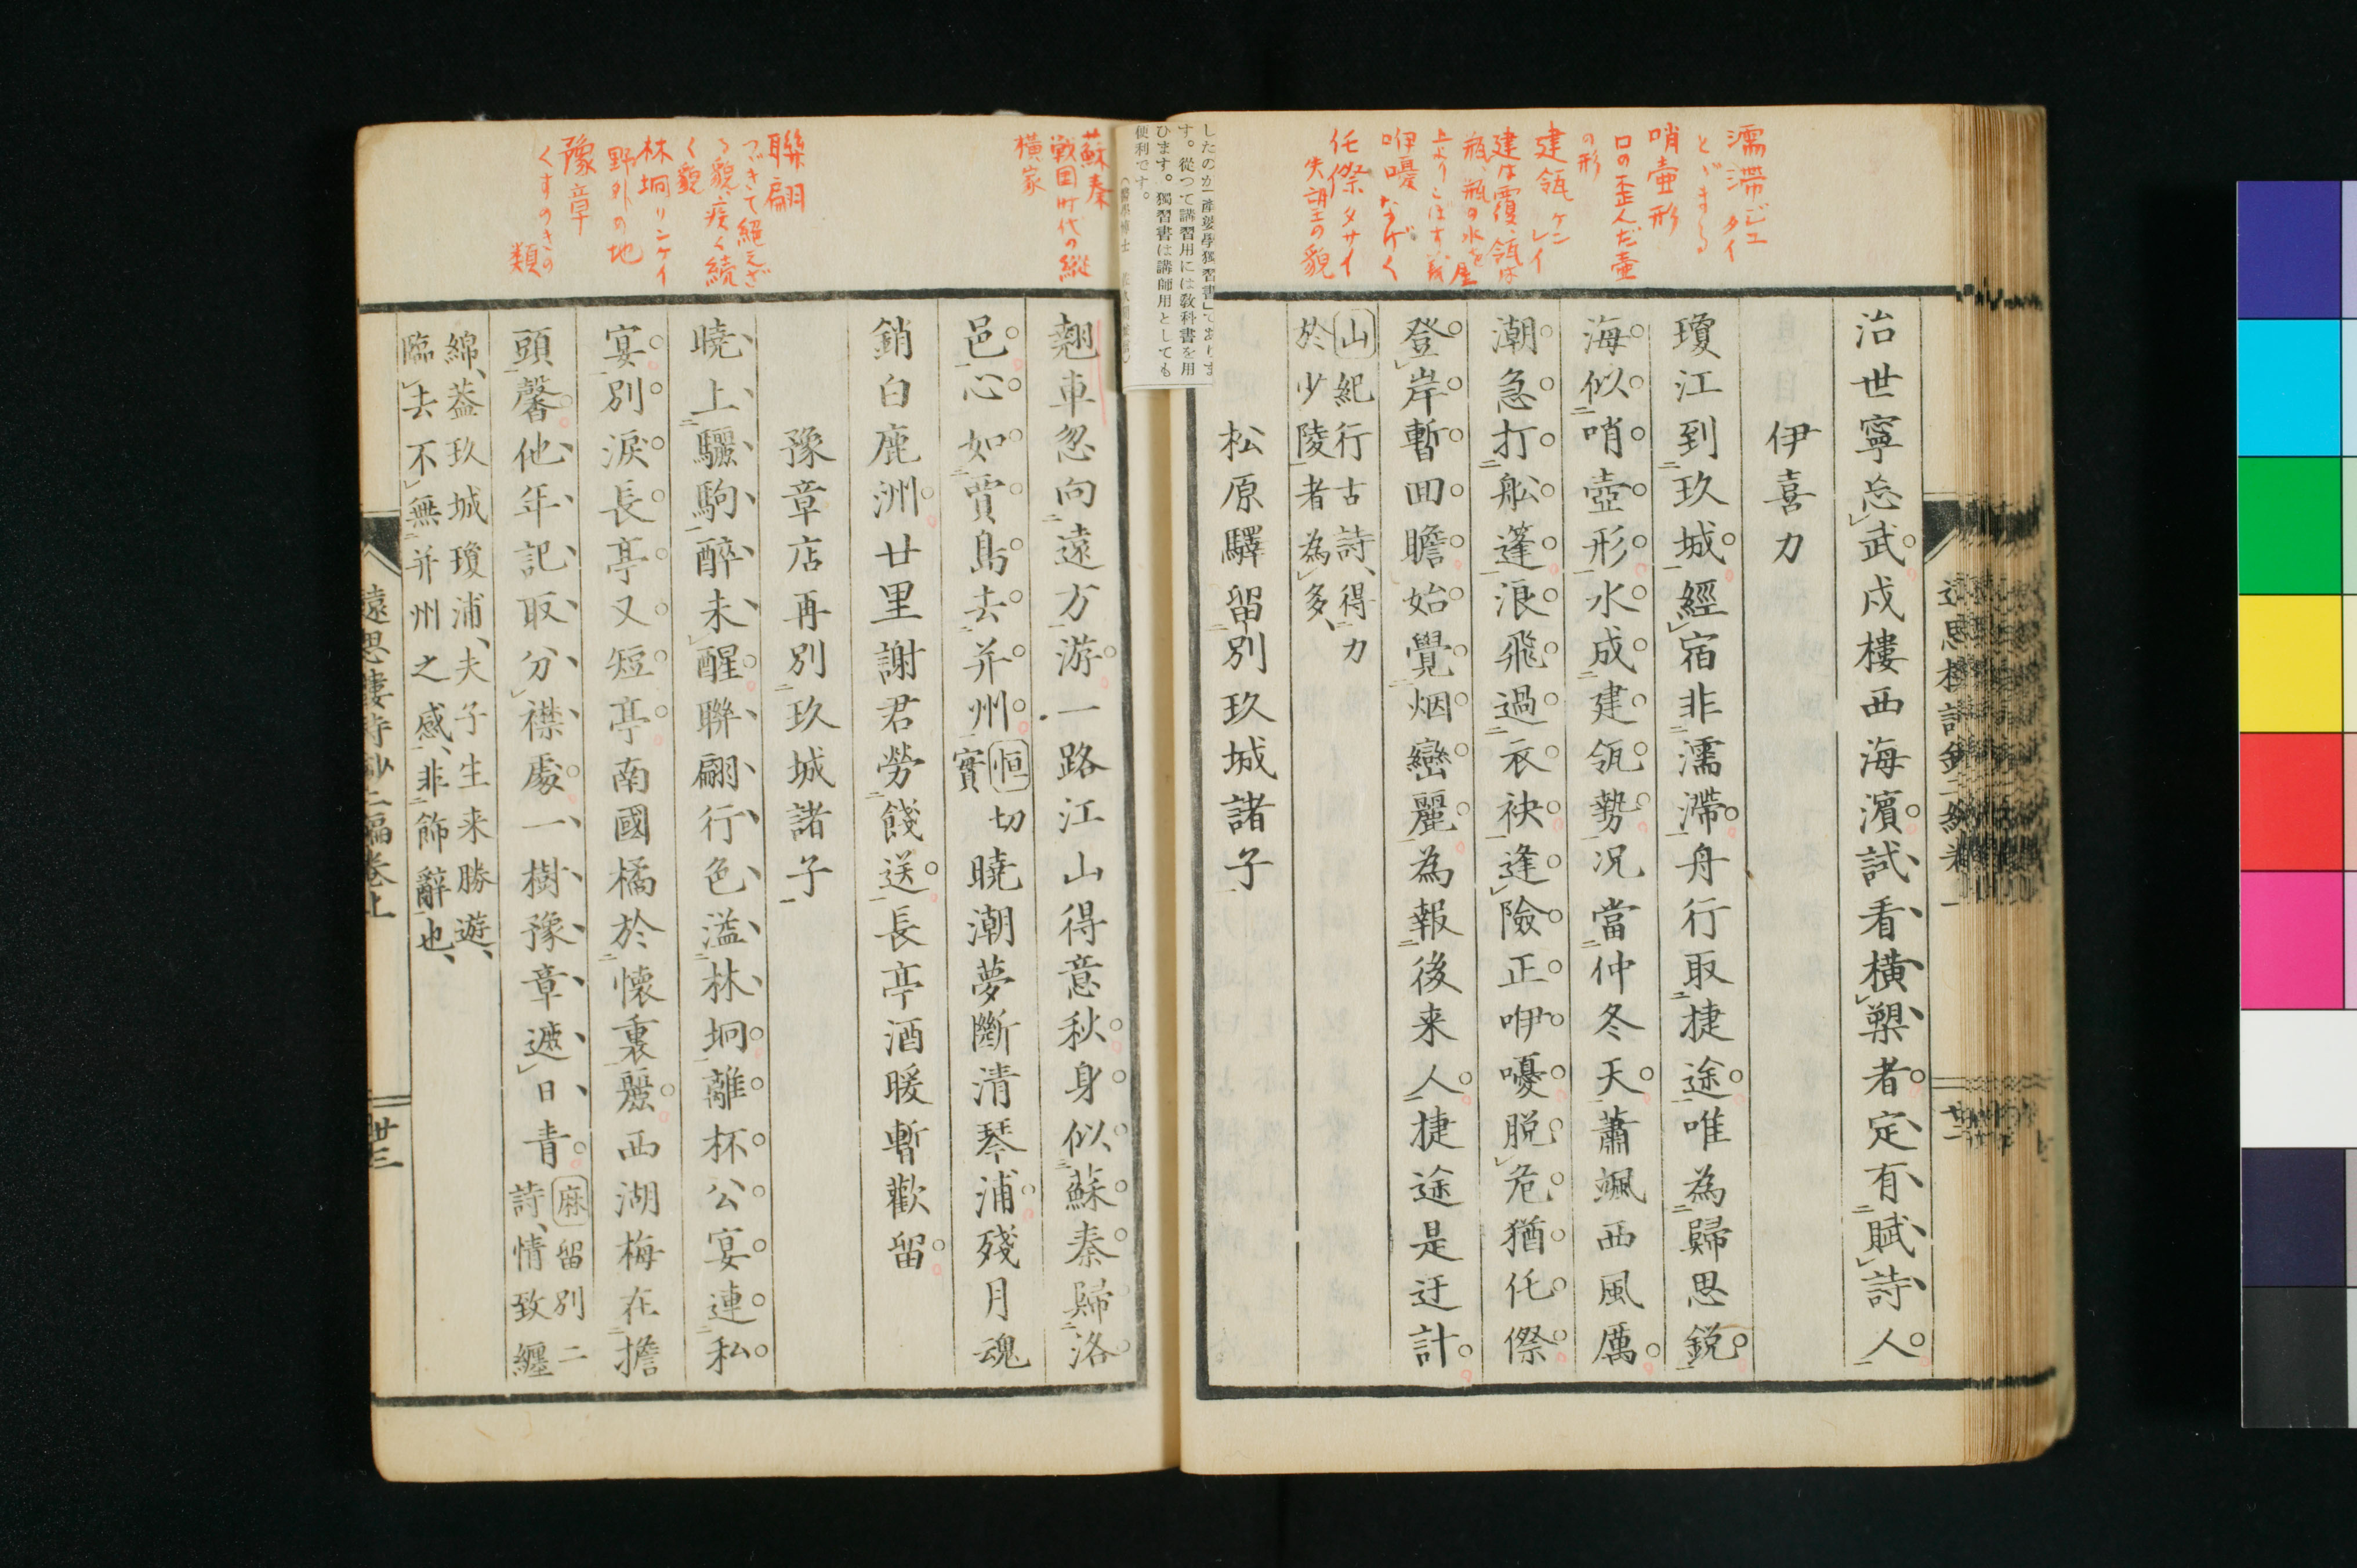 治世寧忘武戍樓西海濱試看橫槊者定有賦詩人
伊喜力
瓊江到玖城經宿非濡滯舟行取捷途唯為歸思銳
海似哨壺形水成建瓴勢況當仲冬天蕭颯西風厲
潮急打船篷浪飛過衣袂逢險正咿嚘脫危猶侘傺
登岸暫回瞻始覺烟巒麗為報後来人捷途是迂計
山紀行古詩、得力
於少陵者為多、
松原驛留別玖城諸子
翹車忽向遠方游一路江山得意秋身似蘇秦歸洛
邑心如賈島去并州
恒切
實
曉潮夢斷清琴浦殘月魂
銷白鹿洲廿里謝君勞餞送長亭酒暖暫歡留
豫章店再別玖城諸子
曉上驪駒醉未醒聯翩行色溢林坰離杯公宴連私
宴別淚長亭又短亭南國橘於懷裏麗西湖梅在擔
頭馨他年記取分襟處一樹豫章遮日青
麻留別二
詩、情致纏
綿、蓋玖城瓊浦、夫子生来勝遊、
臨去不無并州之感、非飾辭也、
遠思樓詩鈔二編卷上
廿三
濡滯 ジユタイ
とゞまる
哨壺形
口の歪んだ壷
の形
建瓴 ケンレイ
建は覆、瓴は
瓶、瓶の水を屋
上よりこぼす義
咿嚘 なげく
侘傺 タサイ
失望の貌
蘇秦
戦国時代の縦
横家
聯翩
つゞきて絕えざ
る貌、疾く続
く貌
林坰 リンケイ
野外の地
豫章
くすのきの
類
したのが「産婆學獨習書」であります
す。從つて講習用には敎科書を用
ひます。獨習書は講師用としても
便利です。